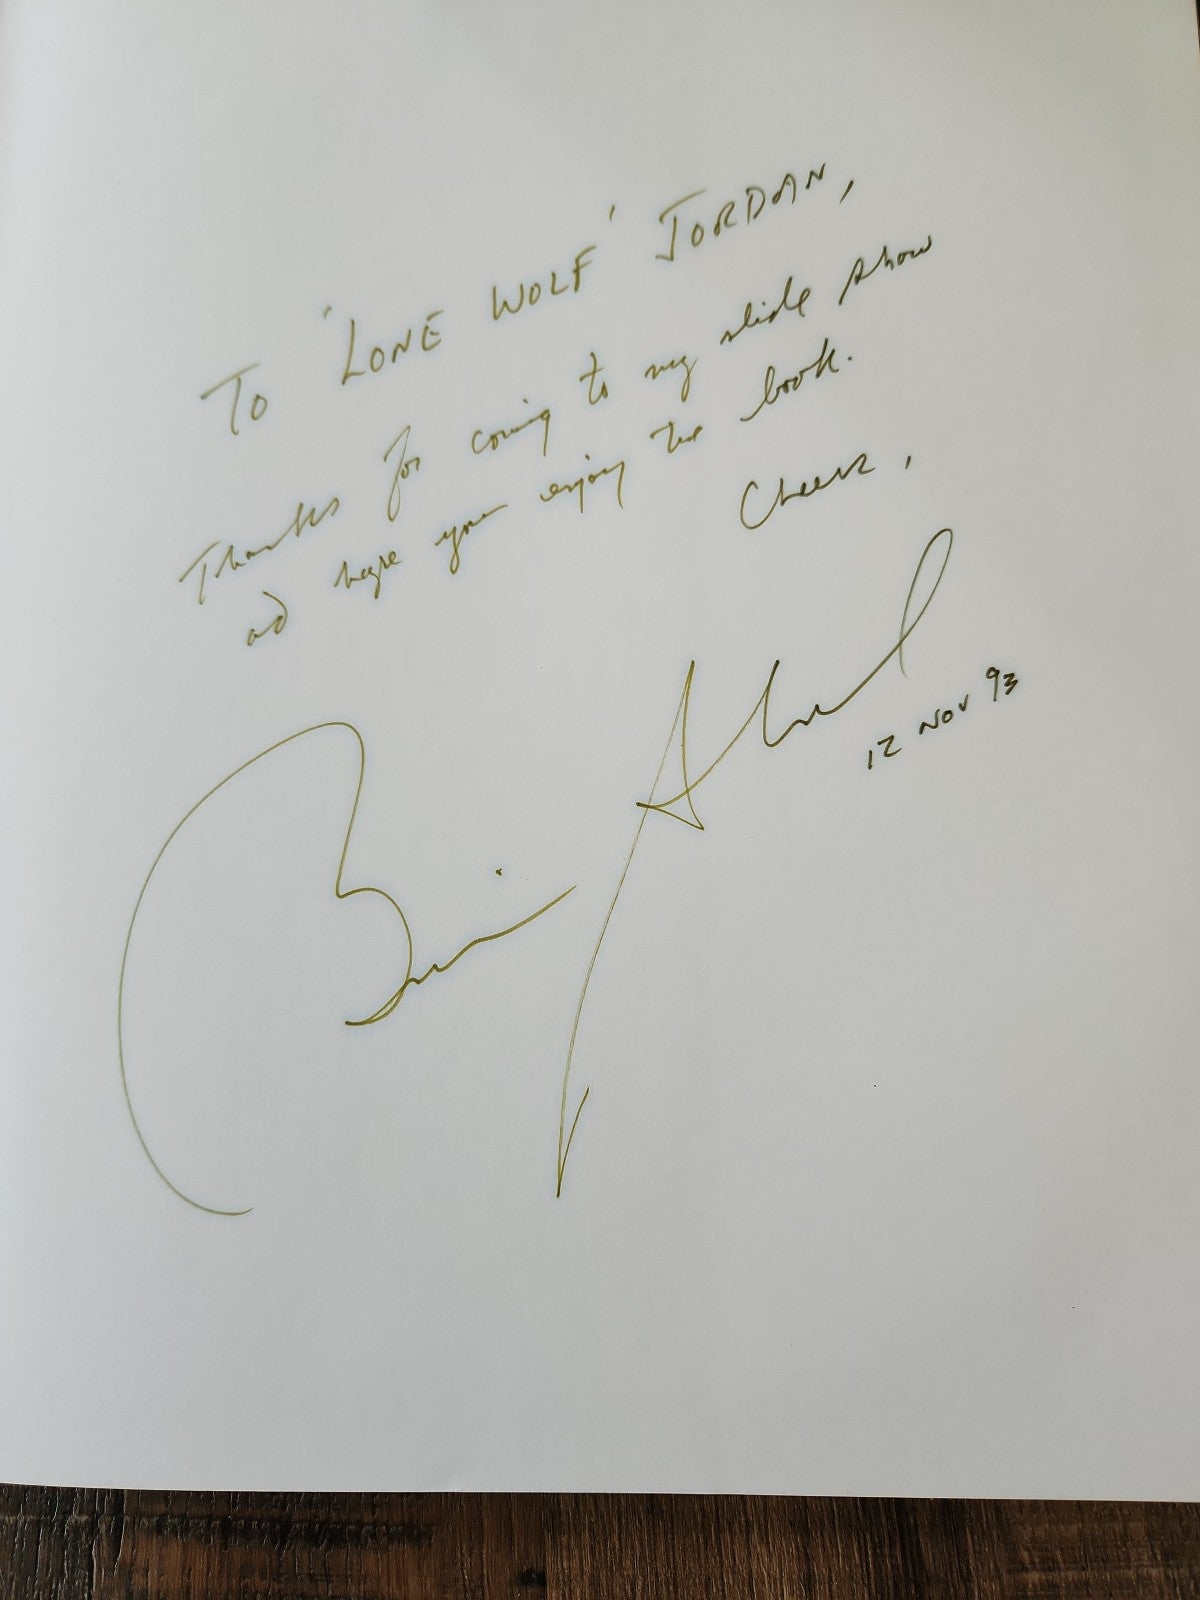 To 'LONE WOLF' JORDAN,
Thanks for coming to my slide show
and hope you enjoy the book.
Cheers,
Brian
12 NOV 93